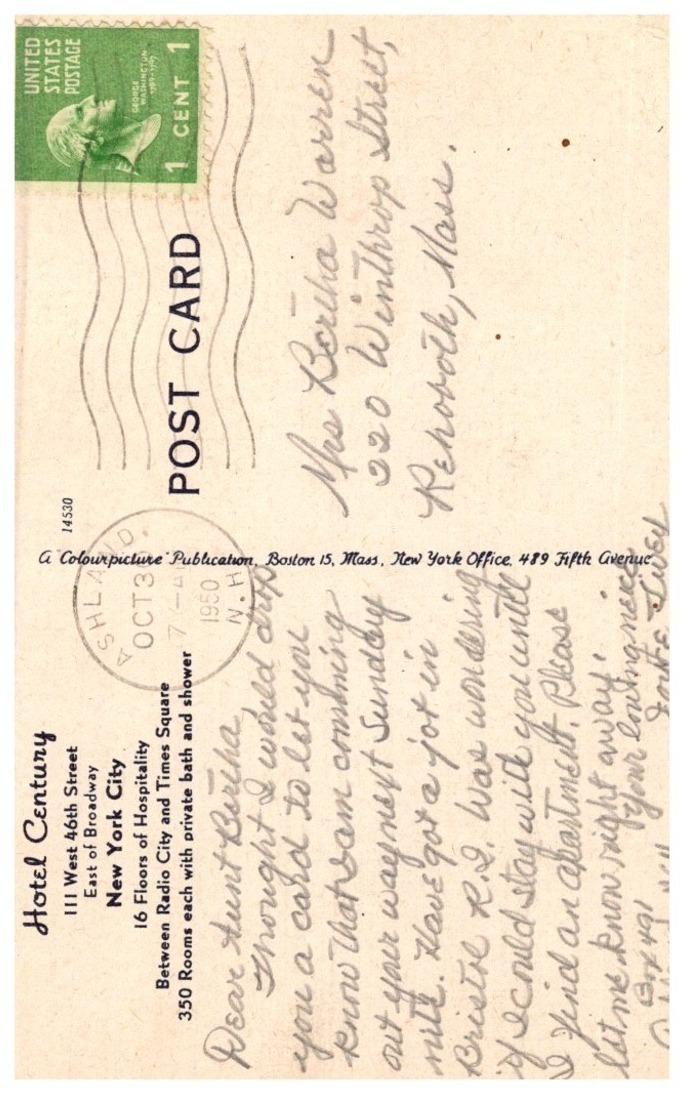 Hotel Century
111 West 46th Street
East of Broadway
New York City
16 Floors of Hospitality
Between Radio City and Times Square
350 Rooms each with private bath and shower
Dear Aunt Bertha,
Thought I would drop
you a card to let you
know that I am comming
out your way next Sunday
nite. Have got a job in
Bristol R.I. Was wondering
if I could stay with you until
I find an apartment. Please
let me know right away.
Your loving niece
Box 491
A Colourpicture Publication, Boston 15, Mass., New York Office, 489 Fifth Avenue
14530
POST CARD
ASHLAND,
OCT 3
7 - AM
1950
N.H.
UNITED
STATES
POSTAGE
GEORGE
WASHINGTON
1789-1797
1 CENT 1
Mrs Bertha Warren
220 Winthrop Street,
Rehoboth, Mass.